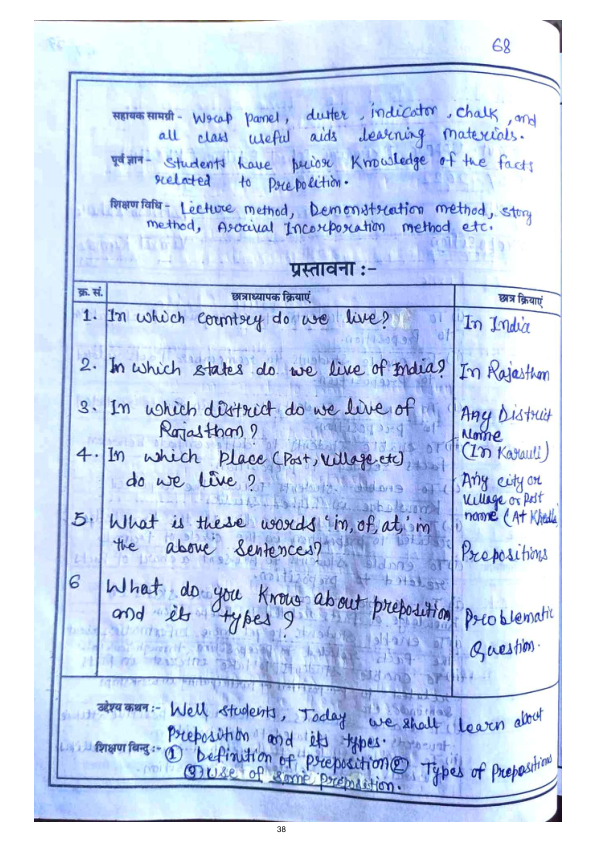 68
सहायक सामग्री - Wrap panel, duster, indicator, chalk, and
all class useful aids learning materials.
पूर्व ज्ञान - Students have prior Knowledge of the facts
related to Preposition.
शिक्षण विधि - Lecture method, Demonstration method, story
method, Incorporation method etc.
प्रस्तावना :-
क्र. सं. छात्राध्यापक क्रियाएं छात्र क्रियाएं
1. In which country do we live? In India
2. In which states do we live of India? In Rajasthan
3. In which district do we live of Any District
Rajasthan? Name
(In Karauli)
4. In which place (Post, Village, etc)
do we live? Any city or
Village or Post
name (At
5. What is these words 'in, of, at, in
the above sentences? Prepositions
6 What do you know about preposition
and its types? Problematic
Question.
उद्देश्य कथन :- Well students, Today we shall learn about
Preposition and its types.
शिक्षण बिन्दु :- ① Definition of preposition ② Types of Prepositions
③ Use of some preposition.
38